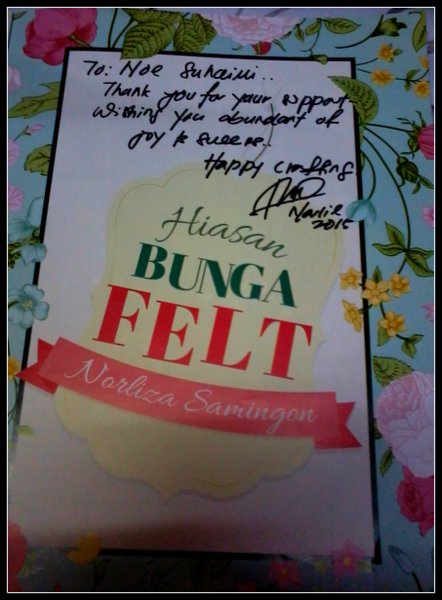 To: Noe Suhaimi..
Thank you for your support
Wishing you abundant of
joy & success..
Happy crafting
2015
Hiasan
BUNGA
FELT
Norliza Samingon